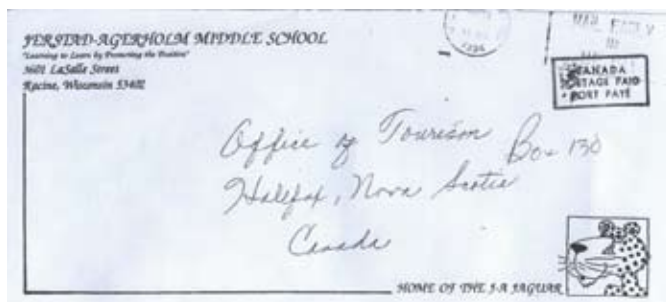 JERSTAD-AGERHOLM MIDDLE SCHOOL
"Learning to Learn by Promoting the Positive"
3601 LaSalle Street
Racine, Wisconsin 53402
MAIL EARLY
CANADA
POSTAGE PAID
PORT PAYÉ
Office of Tourism Box 130
Halifax, Nova Scotia
Canada
HOME OF THE J-A JAGUAR